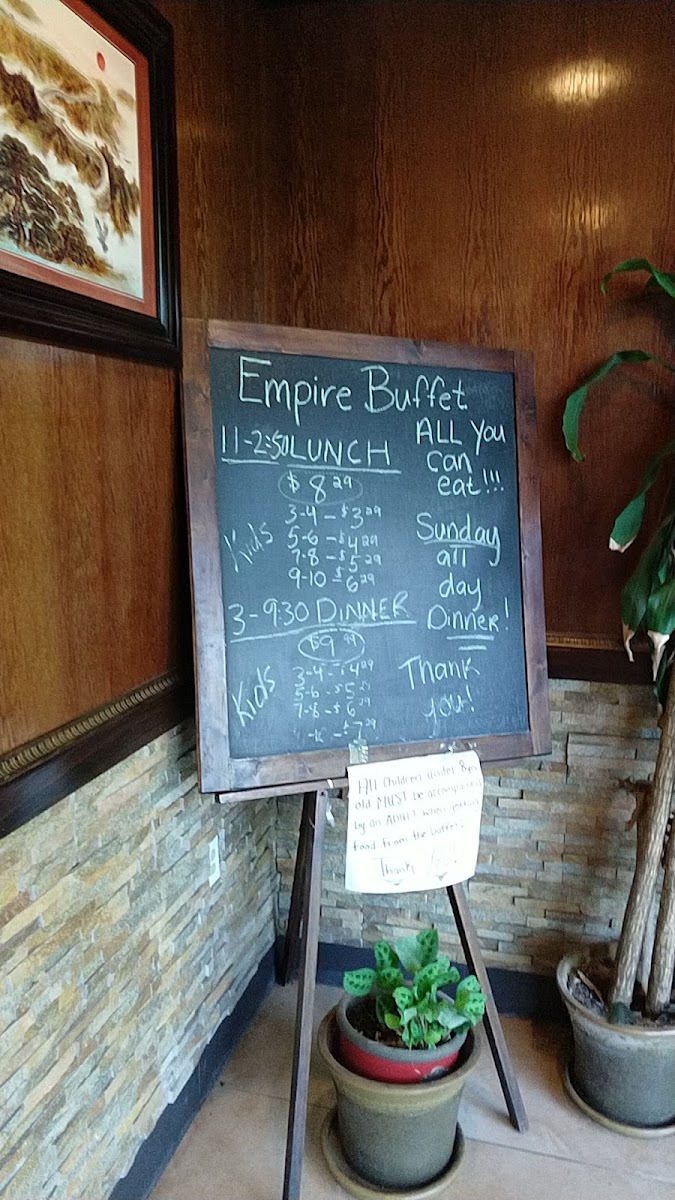 Empire Buffet
11-2:50 LUNCH
$8.29
Kids
3-4 - $3.29
5-6 - $4.29
7-8 - $5.29
9-10 - $6.29
3-9:30 DINNER
$9.99
Kids
3-4 - $4.29
5-6 - $5.29
7-8 - $6.29
- $7.29
ALL You
can
eat!!!
Sunday
all
day
Dinner!
Thank
you!
All Children Under
old MUST be accompanied
by an ADULT when getting
food from the buffet.
Thank You!!